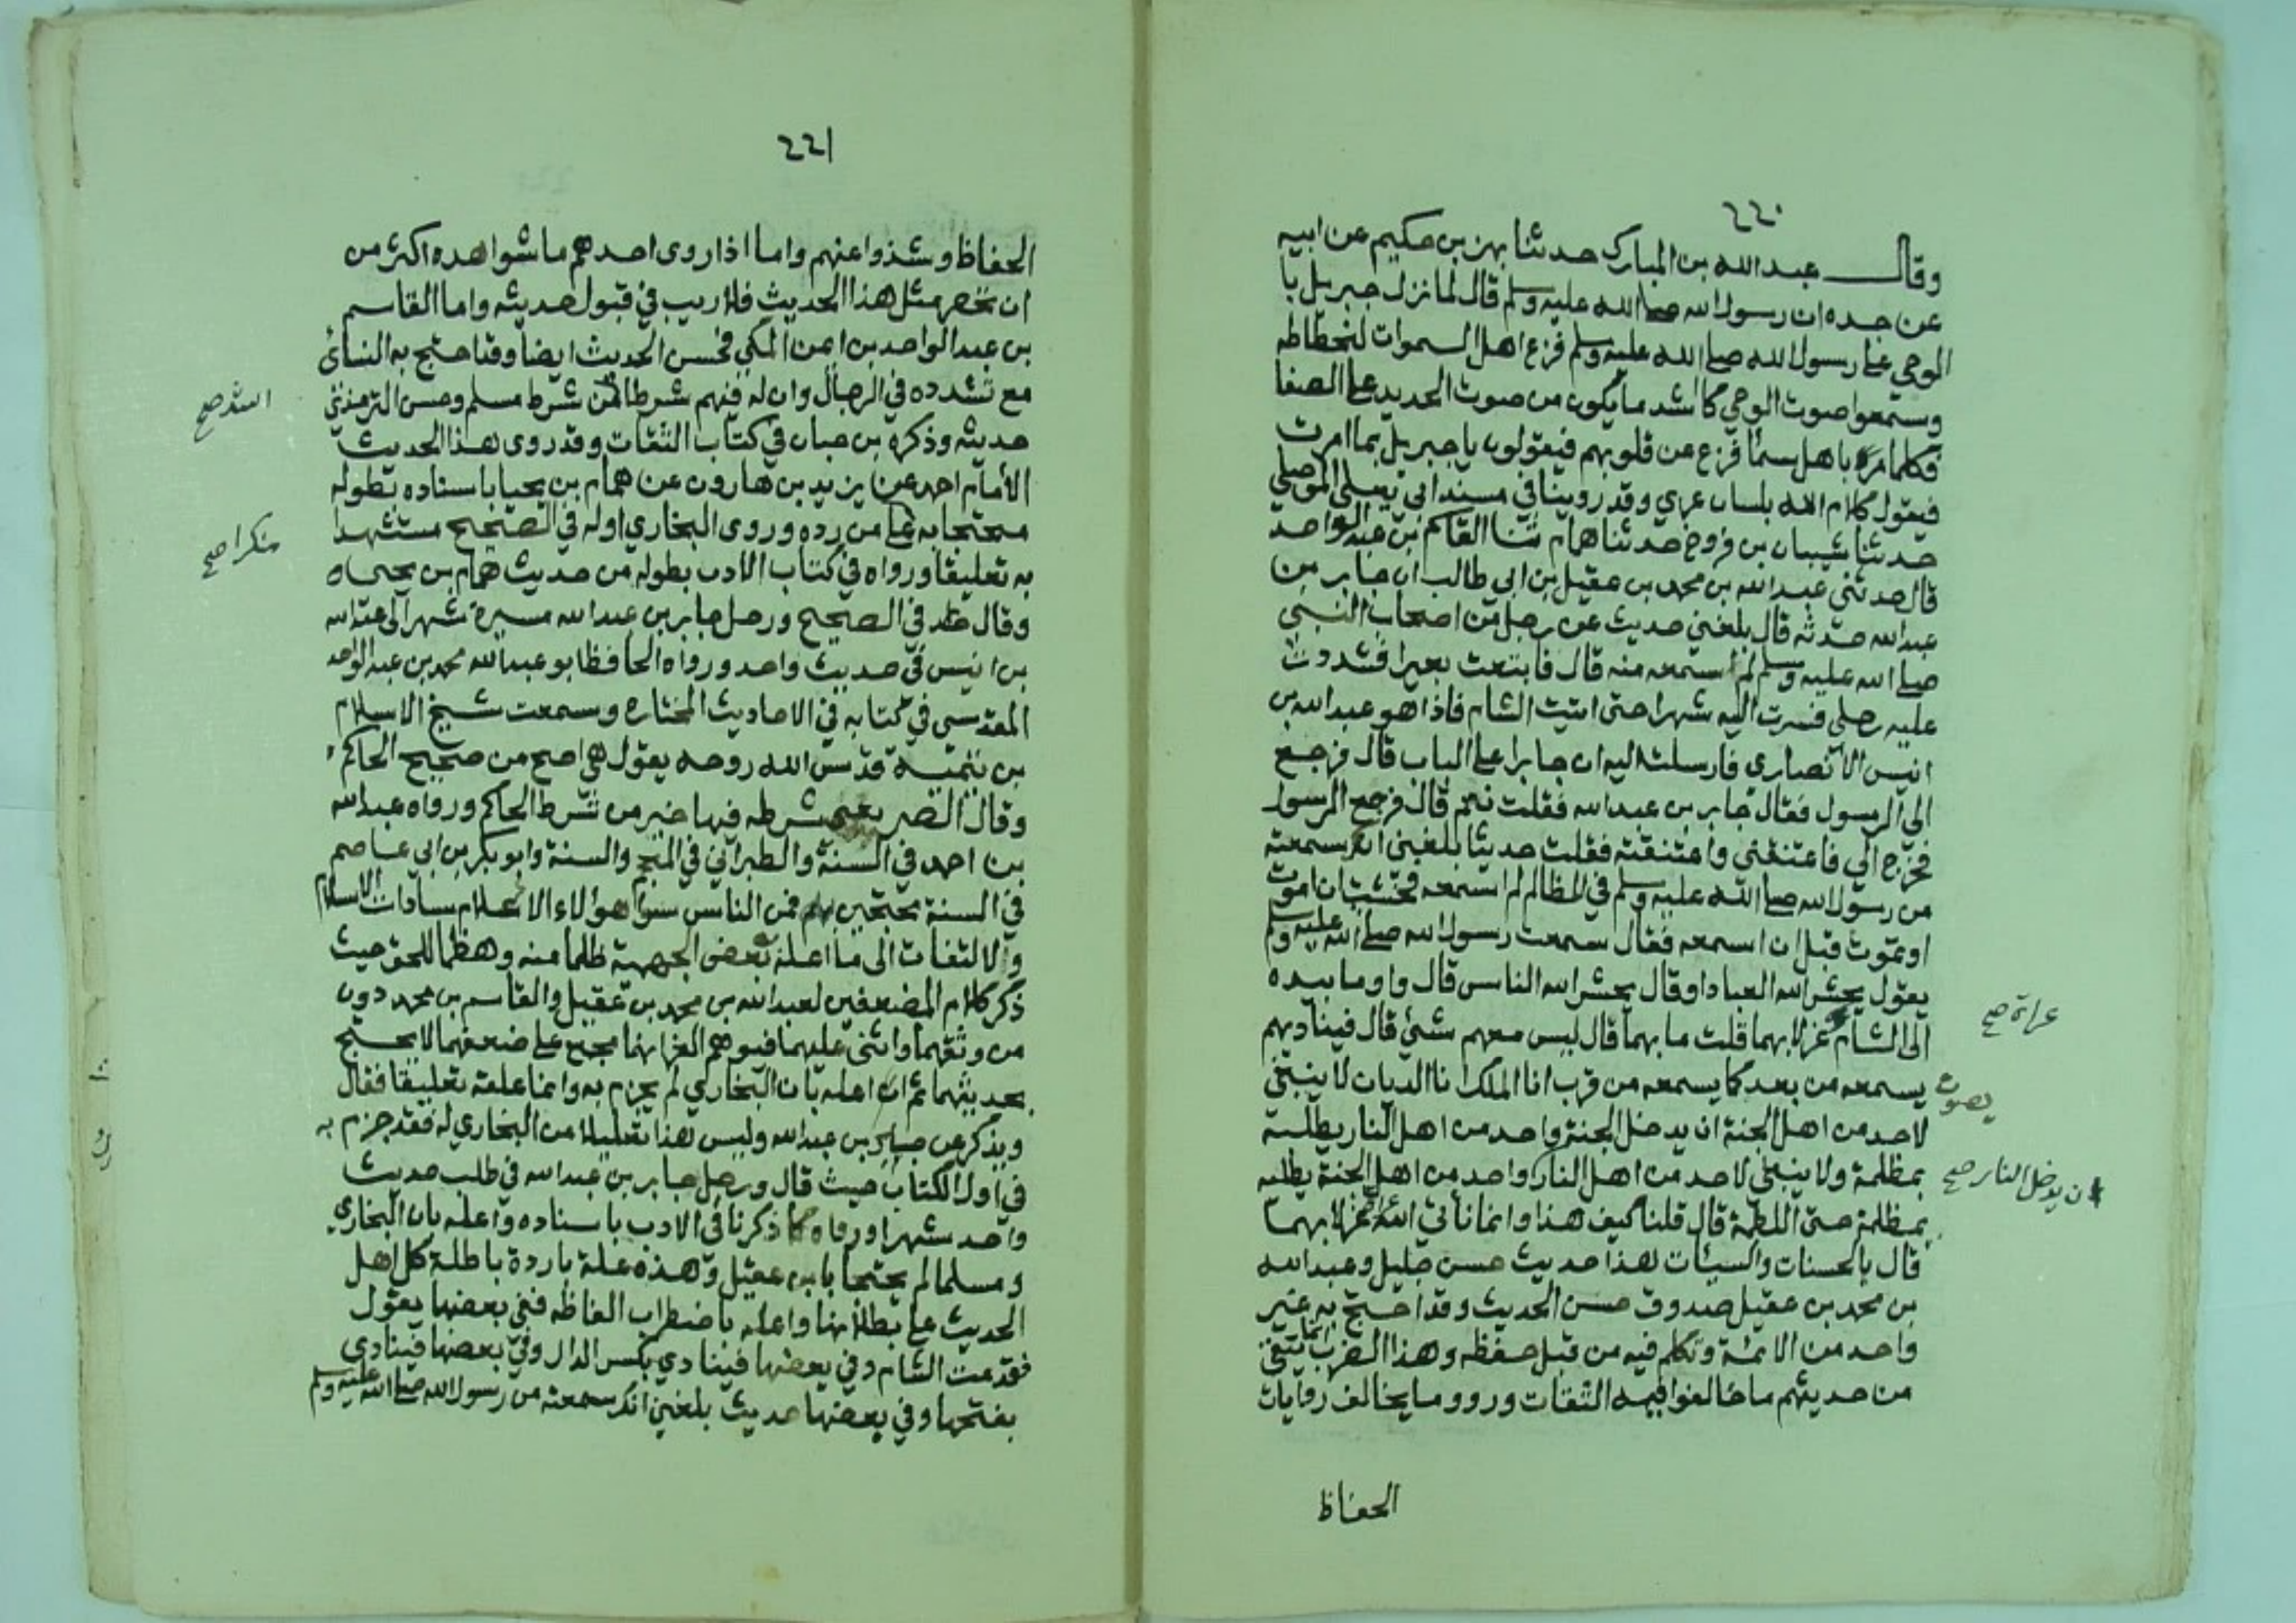 ٢٢٠
وقال عبد الله بن المبارك حدثنا بهز بن حكيم عن ابيه
عن جده ان رسول الله صلى الله عليه وسلم قال لما نزل جبريل با
الوحي على رسول الله صلى الله عليه وسلم فزع اهل السموات لنحطاطه
وسمعوا صوت الوحي كاشد ما يكون من صوت الحديد على الصفا
فكلما مر باهل سما فزع عن قلوبهم فيقولون يا جبريل بما امرت
فيقول كلام الله بلسان عربي وقد روينا في مسند ابي يعلى الموصلي
حدثنا شيبان بن فروخ حدثنا همام ثنا القاسم بن عبد الواحد
قال حدثني عبد الله بن محمد بن عقيل بن ابي طالب ان جابر بن
عبد الله حدثه قال بلغني حديث عن رجل من اصحاب النبي
صلى الله عليه وسلم لم اسمعه منه قال فابتعت بعيرا فشددت
عليه رحلي فسرت اليه شهرا حتى اتيت الشام فاذا هو عبد الله بن
انيس الانصاري فارسلت اليه ان جابرا على الباب قال فرجع
الي الرسول فقال جابر بن عبد الله فقلت نعم قال فرجع الرسول
فخرج الي فاعتنقني واعتنقته فقلت حديثا بلغني انك سمعته
من رسول الله صلى الله عليه وسلم في المظالم لم اسمعه فخشيت ان اموت
او تموت قبل ان اسمعه فقال سمعت رسول الله صلى الله عليه وسلم
يقول يحشر الله العباد او قال يحشر الله الناس قال واوما بيده
الى الشام غرلا بهما قلت ما بهما قال ليس معهم شئ قال فيناديهم
عراة صح
يسمعه من بعد كما يسمعه من قرب انا الملك انا الديان لا ينبغي
بصوت
لاحد من اهل الجنة ان يدخل الجنة واحد من اهل النار يطلبه
بمظلمة ولا ينبغي لاحد من اهل النار واحد من اهل الجنة يطلبه
ان يدخل النار صح
بمظلمة حتى اللطمة قال قلنا كيف هذا وانما نأتي الله غرلا بهما
قال بالحسنات والسيئات هذا حديث حسن جليل وعبد الله
بن محمد بن عقيل صدوق حسن الحديث وقد احتج به غير
واحد من الائمة وتكلم فيه من قبل حفظه وهذا الضرب انما ينتفى
من حديثهم ما خالفوا فيه الثقات ورووا ما يخالف روايات
الحفاظ
٢٢١
الحفاظ وشذوا عنهم واما اذا روى احدهم ما شواهده اكثر من
ان تحصر مثل هذا الحديث فلا ريب في قبول حديثه واما القاسم
بن عبد الواحد بن ايمن المكي فحسن الحديث ايضا وقد احتج به النسائي
مع تشدده في الرجال وان له فيهم شرطا من شرط مسلم وحسن الترمذي
اشد صح
حديثه وذكره بن حبان في كتاب الثقات وقد روى هذا الحديث
الأمام احمد عن يزيد بن هارون عن همام بن يحيا باسناده بطوله
محتجا به على من رده وروى البخاري اوله في الصحيح مستشهدا
منكرا صح
به تعليقا ورواه في كتاب الادب بطوله من حديث همام بن يحيى
وقال في الصحيح ورحل جابر بن عبد الله مسيرة شهر الى عبد الله
بن انيس في حديث واحد ورواه الحافظ ابو عبد الله محمد بن عبد الواحد
المقدسي في كتابه في الاحاديث المختاره وسمعت شيخ الاسلام
بن تيمية قدس الله روحه يقول هي اصح من صحيح الحاكم
وقال النصر يعني شرطه فيها خير من شرط الحاكم ورواه عبد الله
بن احمد في السنة والطبراني في المعجم والسنة وابو بكر بن ابي عاصم
في السنة محتجين به فمن الناس سوا هؤلاء الاعلام سادات الاسلام
ولا التفات الى ما اعله بعض الجهمية ظلما منه وهظما للحق حيث
ذكر كلام المضعفين لعبد الله بن محمد بن عقيل والقاسم بن محمد دون
من وثقهما واثنى عليهما فيوهم الغر انهما مجمع على ضعفهما لا يحتج
بحديثهما ثم ان اعله بان البخاري لم يجزم به وانما علقه تعليقا فقال
ويذكر عن جابر بن عبد الله وليس هذا تعليلا من البخاري له فقد جزم به
في اول الكتاب حيث قال ورحل جابر بن عبد الله في طلب حديث
واحد شهرا ورواه كما ذكرنا في الادب باسناده واعله بان البخاري
ومسلما لم يحتجا بابن عقيل وهذه علة باردة باطلة كل اهل
الحديث على بطلانها واعله باضطراب الفاظه ففي بعضها يقول
فقدمت الشام وفي بعضها فينادي بكسر الدال وفي بعضها فينادى
بفتحها وفي بعضها حديث بلغني انك سمعته من رسول الله صلى الله عليه وسلم